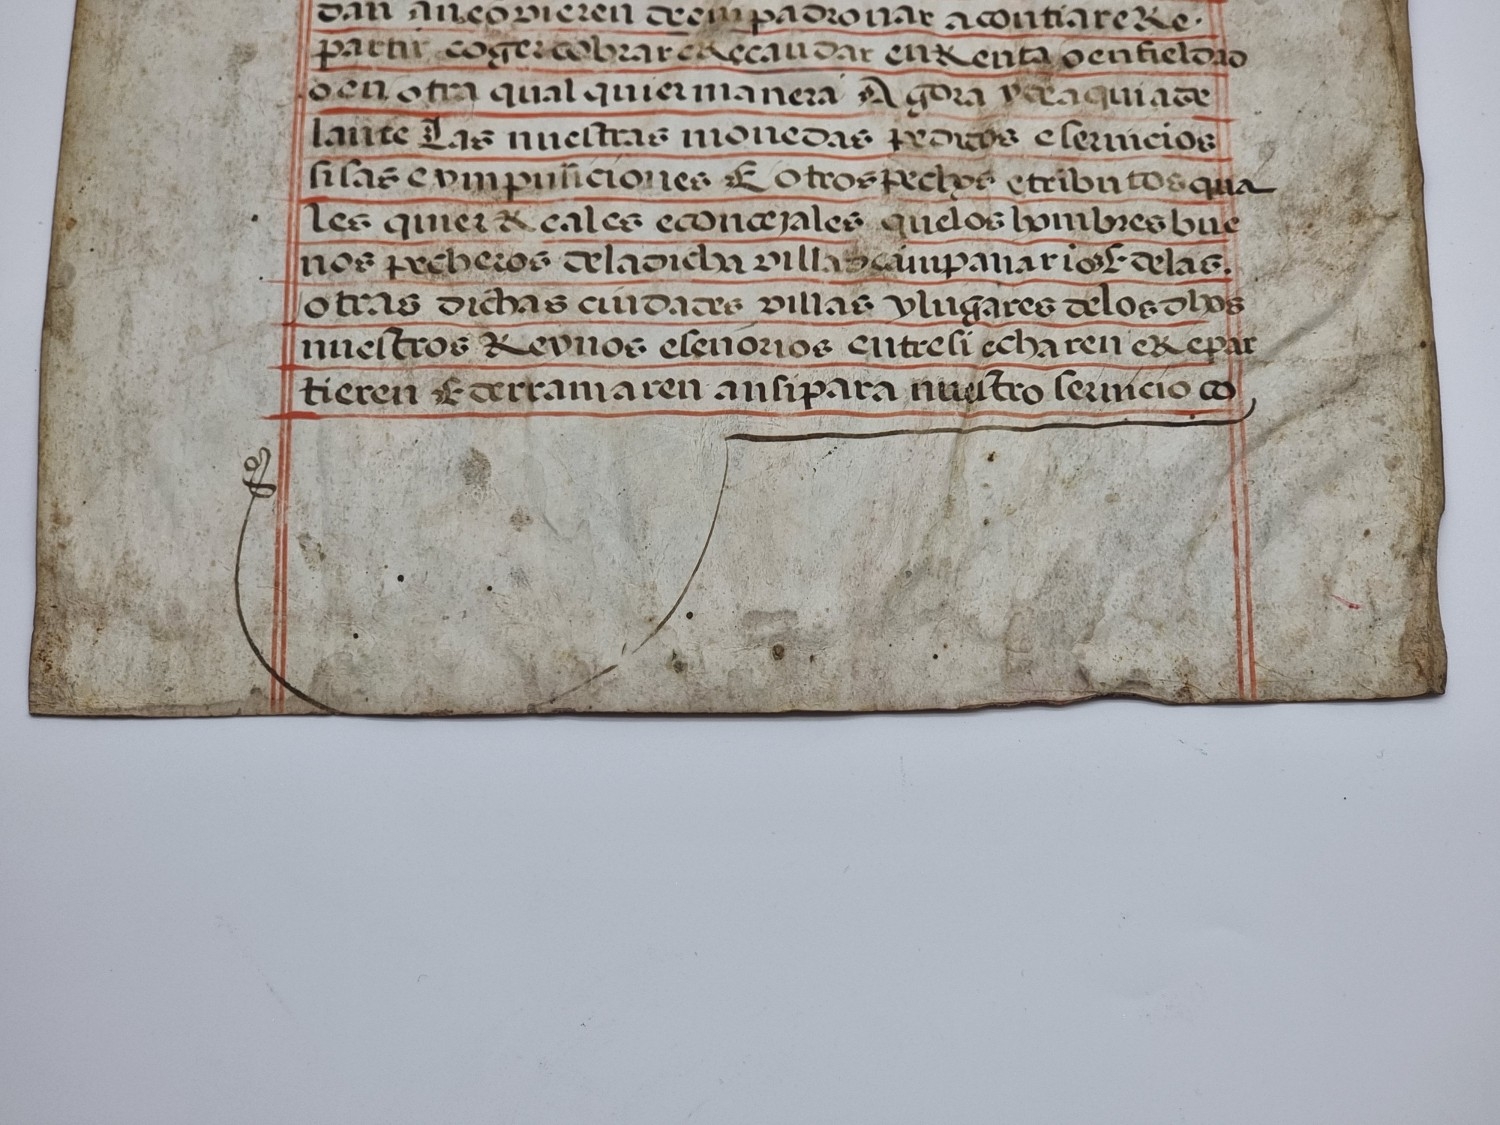 dan an e ovieren de empadronar acontiar e Re
partir coger cobrar e Recaudar en Renta o en fieldad
o en otra qual quier manera Agora y de aqui ade
lante Las nuestras monedas pedidos e seruicios
sisas e ympusiciones E otros pechos e tributos qua
les quier Reales e concejales que los hombres bue
nos pecheros de la dicha villa de campanario E de las
otras dichas ciudades villas y lugares de los dhos
nuestros Reynos e señorios entre si echaren e Repar
tieren E derramaren ansi para nuestro seruicio co